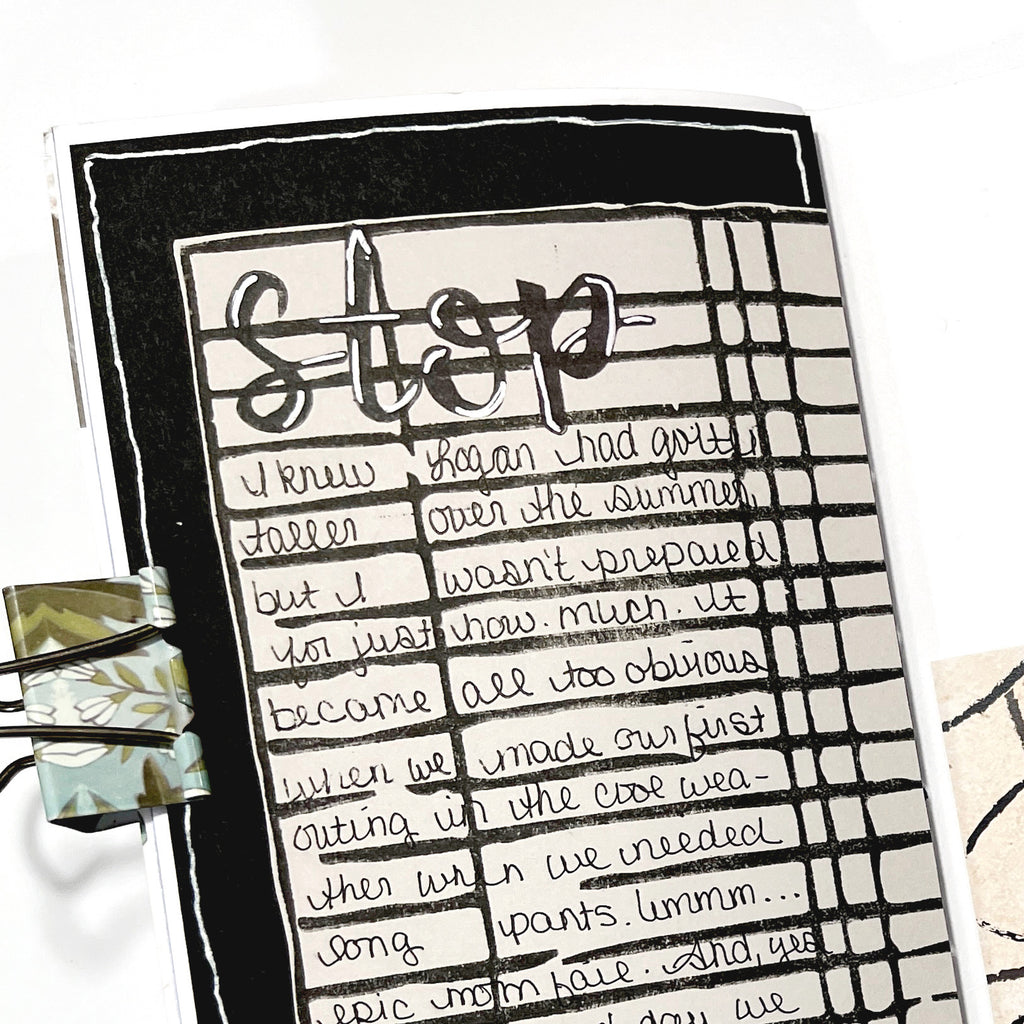 stop
I knew Logan had gotten
taller over the summer,
but I wasn't prepared
for just how much. It
became all too obvious
when we made our first
outing in the cool wea-
ther when we needed
long pants. Ummm...
epic mom fail. And, yes
day we